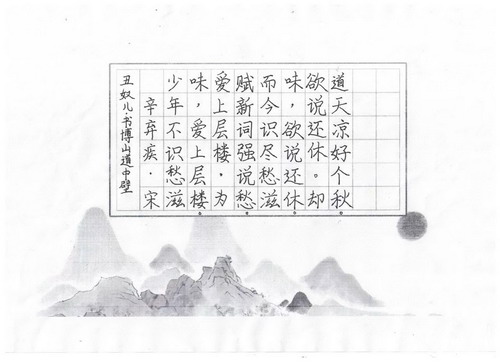 丑奴儿书博山道中壁
辛弃疾·宋
少年不识愁滋
味，爱上层楼。
爱上层楼，为
赋新词强说愁。
而今识尽愁滋
味，欲说还休。
欲说还休。却
道天凉好个秋。